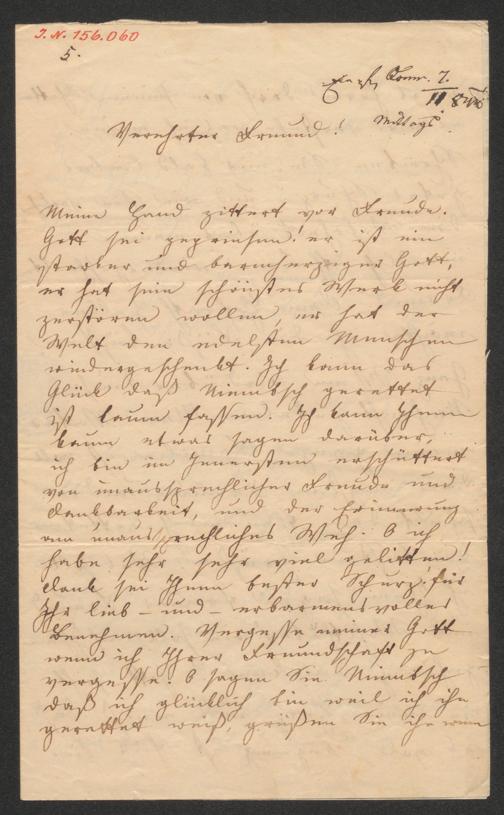 J. N. 156.060
5.
7.
11 844
Mittags
Verehrter Freund!
Meine Hand zittert vor Freude.
Gott sei gepriesen! er ist ein
starker und barmherziger Gott,
er hat sein schönstes Werk nicht
zerstören wollen, er hat der
Welt den edelsten Menschen
wiedergeschenkt. Ich kann das
Glück daß Niembsch gerettet
ist kaum fassen. Ich kann Ihnen
kaum etwas sagen darüber,
ich bin im Innersten erschüttert
von unaussprechlicher Freude und
Dankbarkeit, und der Erinnerung
an unaussprechliches Weh. O ich
habe sehr sehr viel gelitten!
Dank sei Ihnen bester Schurz für
Ihr lieb- und -erbarmensvolles
Benehmen. Vergesse meiner Gott
wenn ich Ihrer Freundschaft je
vergesse. O sagen Sie Niembsch
daß ich glücklich bin weil ich ihn
gerettet weiß, grüßen Sie ihn wenn